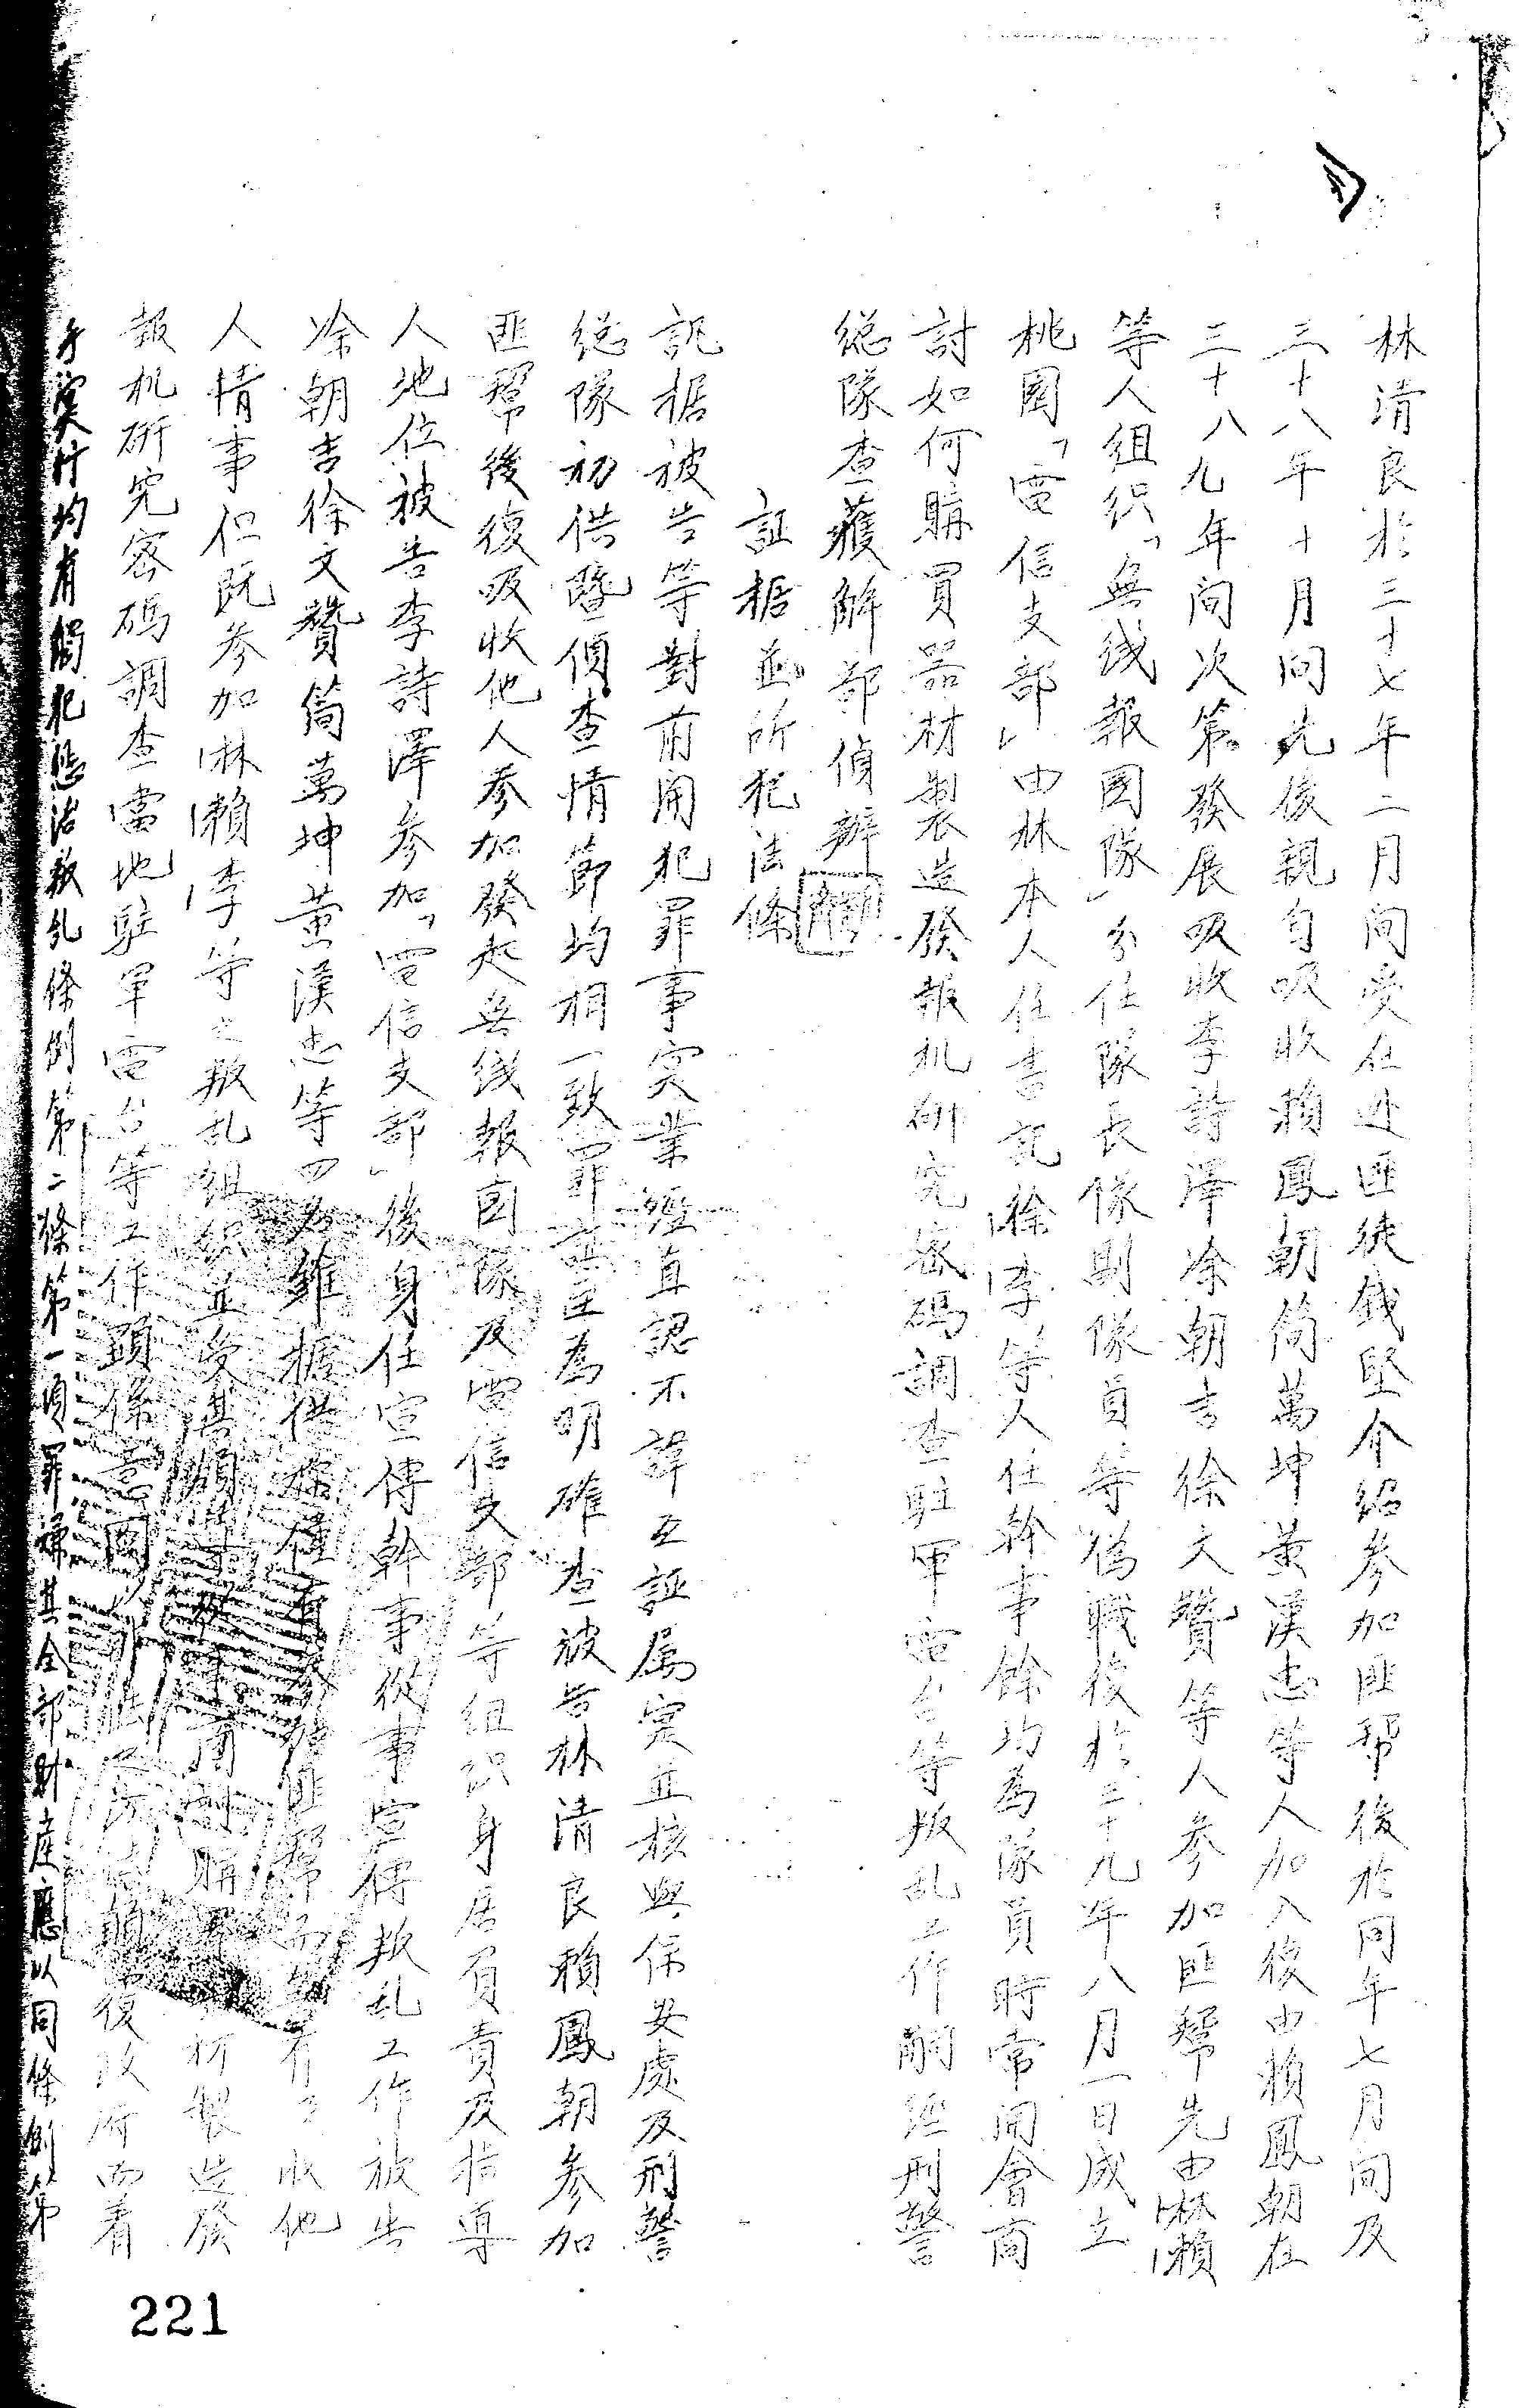 林清良於三十七年二月間受在逃匪徒錢堅介紹參加匪帮後於同年七月間及
三十八年十月間先後親自吸收賴鳳朝简萬坤黃漢忠等人加入後由賴鳳朝在
三十八九年間次第發展吸收李詩澤凃朝吉徐文贊等人參加匪幫先由林賴
等人組织「無线報国隊」分任隊長隊副隊員等偽職後於三十九年八月一日成立
桃園「電信支部」由林本人任書記徐李等人任幹事餘均為隊員時常開會商
討如何購買器材製造發報机研究密碼調查駐軍電台等叛乱工作嗣經刑警
総隊查獲解部偵辦
証据並所犯法條
訊据被告等對前開犯罪事实業經直認不諱互証属实並核與保安處及刑警
総隊初供暨偵查情節均相一致罪証至為明確查被告林清良賴鳳朝參加
匪幫後復吸收他人參加發起無线報国隊及電信支部等組织身居負責及指導
人地位被告李詩澤參加「電信支部」後身任宣傳幹事從事宣傳叛乱工作被告
凃朝吉徐文贊简萬坤黃漢忠等四名雖据供称僅有參加匪幫而無有吸收他
人情事但既參加林賴李等之叛乱組织並受其領導從事商討購買器材製造發
報机研究密碼調查當地駐軍電台等工作顕係意圖以非法之方法顛覆政府而着
手实行均有觸犯懲治叛乱條例第二條第一項罪嫌其全部財產應以同條例第
221